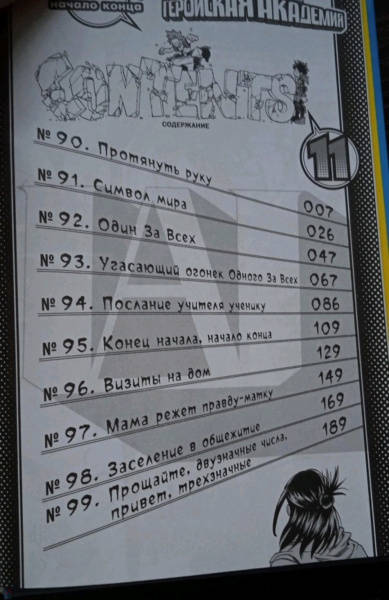 начало конца
ГЕРОЙСКАЯ АКАДЕМИЯ
CONTENTS!
СОДЕРЖАНИЕ
11
№ 90. Протянуть руку 007
№ 91. Символ мира 026
№ 92. Один За Всех 047
№ 93. Угасающий огонек Одного За Всех 067
№ 94. Послание учителя ученику 086
№ 95. Конец начала, начало конца 109
№ 96. Визиты на дом 129
№ 97. Мама режет правду-матку 149
№ 98. Заселение в общежитие 169
№ 99. Прощайте, двузначные числа, 189
привет, трехзначные